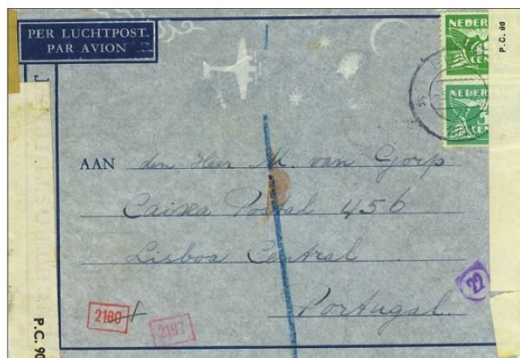 PER LUCHTPOST.
PAR AVION
NEDER
CEN
P.C. 90
NEDER
CEN
AAN den Heer M. van Gorp
Caixa Postal 456
Lisboa Central
Portugal
22
2180
2197
P.C. 90